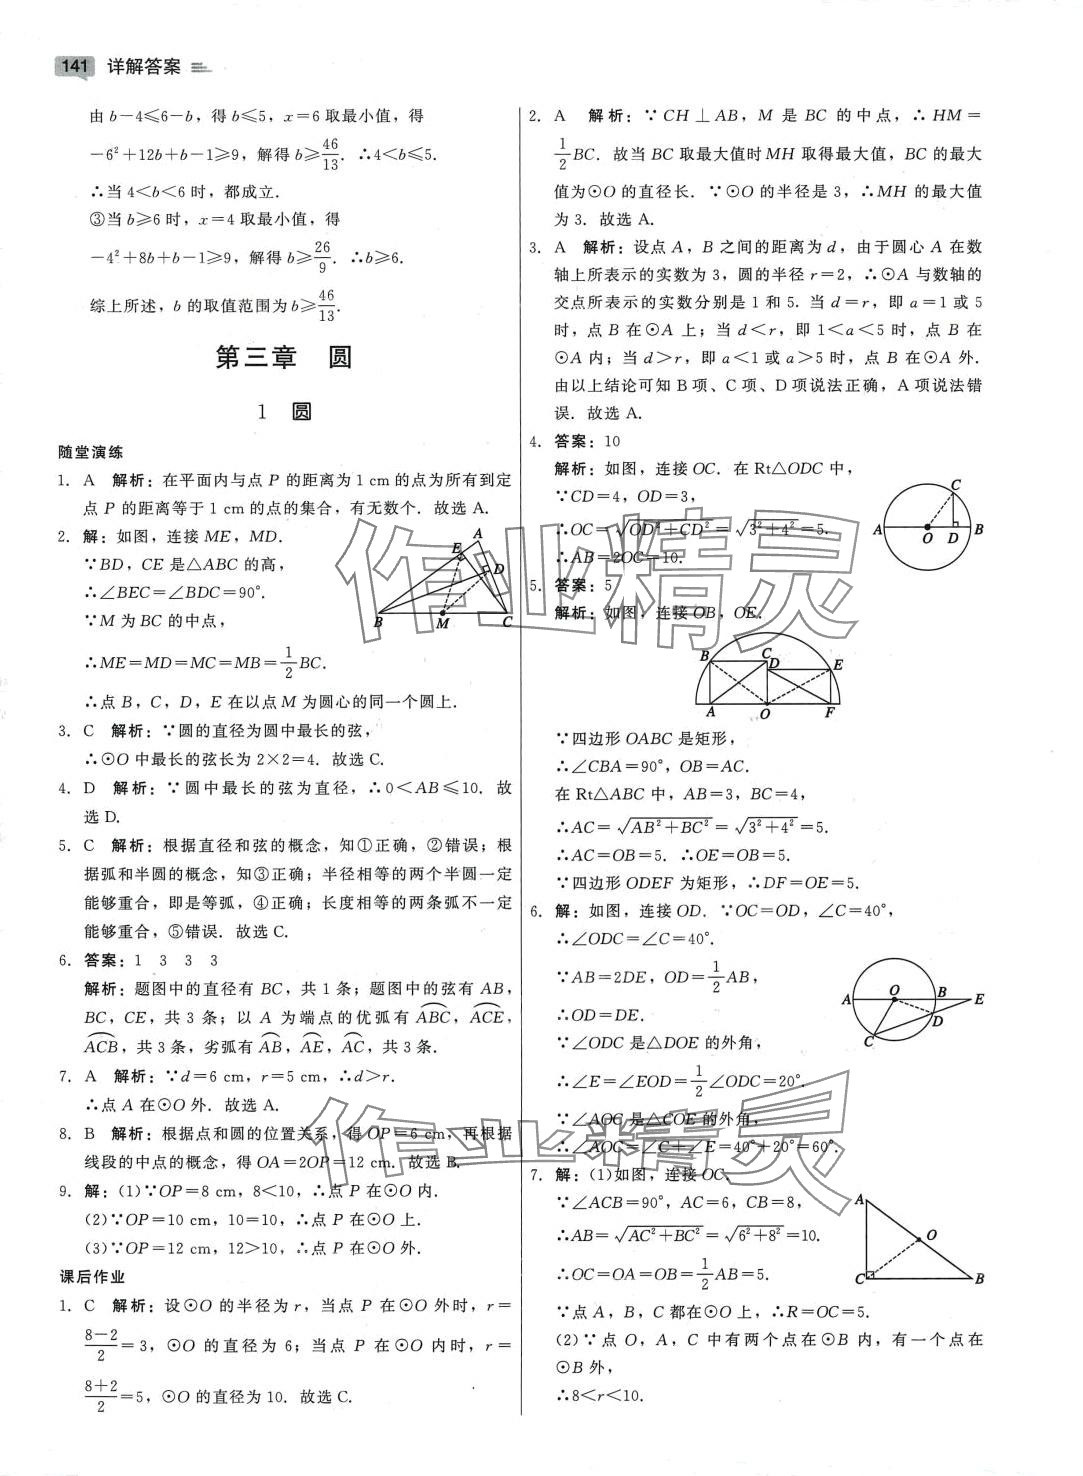 141 详解答案
由 b-4≤6-b，得 b≤5，x=6 取最小值，得
-6²+12b+b-1≥9，解得 b≥46/13．∴4<b≤5.
∴当 4<b<6 时，都成立.
③当 b≥6 时，x=4 取最小值，得
-4²+8b+b-1≥9，解得 b≥26/9．∴b≥6.
综上所述，b 的取值范围为 b≥46/13.
第三章 圆
1 圆
随堂演练
1. A 解析：在平面内与点 P 的距离为 1 cm 的点为所有到定
点 P 的距离等于 1 cm 的点的集合，有无数个．故选 A.
2. 解：如图，连接 ME，MD.
∵BD，CE 是△ABC 的高，
∴∠BEC=∠BDC=90°.
∵M 为 BC 的中点，
∴ME=MD=MC=MB=1/2 BC.
∴点 B，C，D，E 在以点 M 为圆心的同一个圆上.
A
E
D
B
M
C
3. C 解析：∵圆的直径为圆中最长的弦，
∴⊙O 中最长的弦长为 2×2=4．故选 C.
4. D 解析：∵圆中最长的弦为直径，∴0<AB≤10．故
选 D.
5. C 解析：根据直径和弦的概念，知①正确，②错误；根
据弧和半圆的概念，知③正确；半径相等的两个半圆一定
能够重合，即是等弧，④正确；长度相等的两条弧不一定
能够重合，⑤错误．故选 C.
6. 答案：1 3 3 3
解析：题图中的直径有 BC，共 1 条；题图中的弦有 AB，
BC，CE，共 3 条；以 A 为端点的优弧有 ABC，ACE，
ACB，共 3 条，劣弧有 AB，AE，AC，共 3 条.
7. A 解析：∵d=6 cm，r=5 cm，∴d>r.
∴点 A 在⊙O 外．故选 A.
8. B 解析：根据点和圆的位置关系，得 OP=6 cm，再根据
线段的中点的概念，得 OA=2OP=12 cm．故选 B.
9. 解：(1)∵OP=8 cm，8<10，∴点 P 在⊙O 内.
(2)∵OP=10 cm，10=10，∴点 P 在⊙O 上.
(3)∵OP=12 cm，12>10，∴点 P 在⊙O 外.
课后作业
1. C 解析：设⊙O 的半径为 r，当点 P 在⊙O 外时，r=
(8-2)/2=3，⊙O 的直径为 6；当点 P 在⊙O 内时，r=
(8+2)/2=5，⊙O 的直径为 10．故选 C.
2. A 解析：∵CH⊥AB，M 是 BC 的中点，∴HM=
1/2 BC．故当 BC 取最大值时 MH 取得最大值，BC 的最大
值为⊙O 的直径长．∵⊙O 的半径是 3，∴MH 的最大值
为 3．故选 A.
3. A 解析：设点 A，B 之间的距离为 d，由于圆心 A 在数
轴上所表示的实数为 3，圆的半径 r=2，∴⊙A 与数轴的
交点所表示的实数分别是 1 和 5．当 d=r，即 a=1 或 5
时，点 B 在⊙A 上；当 d<r，即 1<a<5 时，点 B 在
⊙A 内；当 d>r，即 a<1 或 a>5 时，点 B 在⊙A 外.
由以上结论可知 B 项、C 项、D 项说法正确，A 项说法错
误．故选 A.
4. 答案：10
解析：如图，连接 OC．在 Rt△ODC 中，
∵CD=4，OD=3，
∴OC=√(OD²+CD²)=√(3²+4²)=5.
∴AB=2OC=10.
C
A
O
D
B
5. 答案：5
解析：如图，连接 OB，OE.
B
C
D
E
A
O
F
∵四边形 OABC 是矩形，
∴∠CBA=90°，OB=AC.
在 Rt△ABC 中，AB=3，BC=4，
∴AC=√(AB²+BC²)=√(3²+4²)=5.
∴AC=OB=5．∴OE=OB=5.
∵四边形 ODEF 为矩形，∴DF=OE=5.
6. 解：如图，连接 OD．∵OC=OD，∠C=40°，
∴∠ODC=∠C=40°.
∵AB=2DE，OD=1/2 AB，
∴OD=DE.
∵∠ODC 是△DOE 的外角，
∴∠E=∠EOD=1/2∠ODC=20°.
∵∠AOC 是△COE 的外角，
∴∠AOC=∠C+∠E=40°+20°=60°.
A
O
B
E
D
C
7. 解：(1)如图，连接 OC.
∵∠ACB=90°，AC=6，CB=8，
∴AB=√(AC²+BC²)=√(6²+8²)=10.
∴OC=OA=OB=1/2 AB=5.
∵点 A，B，C 都在⊙O 上，∴R=OC=5.
(2)∵点 O，A，C 中有两个点在⊙B 内，有一个点在
⊙B 外，
∴8<r<10.
A
O
C
B
作业精灵
作业精灵